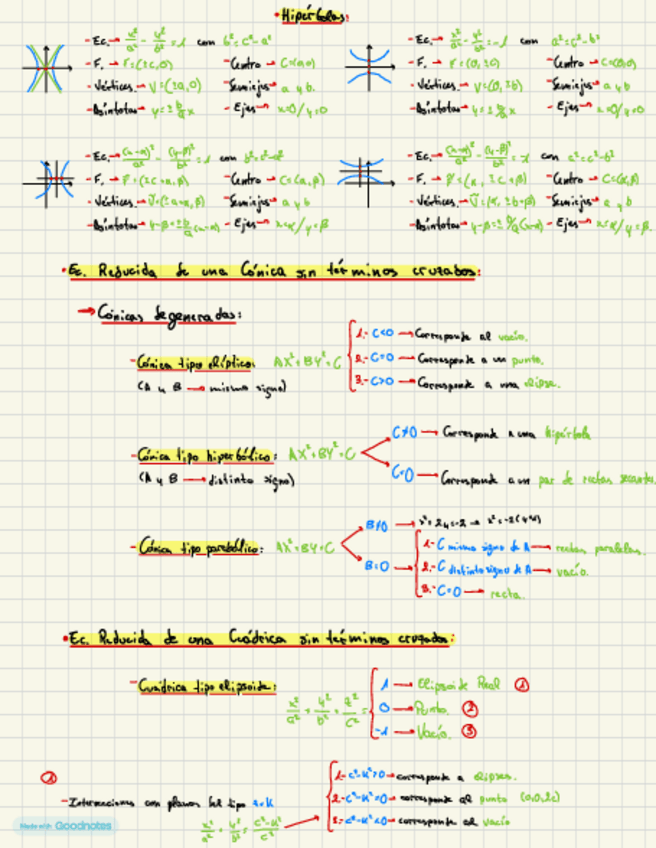 · Hipérbolas:
- Ec. → x²/a² - y²/b² = 1 con b² = c² - a²
- F. → F = (±c, 0) - Centro → C = (0,0)
- Vértices. → V = (±a, 0) - Semiejes → a y b
- Asíntotas → y = ± b/a x - Ejes → x=0/y=0
- Ec. → x²/a² - y²/b² = -1 con a² = c² - b²
- F. → F = (0, ±c) - Centro → C = (0,0)
- Vértices → V = (0, ±b) - Semiejes → a y b
- Asíntotas → y = ± b/a x - Ejes → x=0/y=0
- Ec. → (x-α)²/a² - (y-β)²/b² = 1 con b² = c² - a²
- F. → F = (±c+α, β) - Centro → C = (α, β)
- Vértices. → V = (±a+α, β) - Semiejes → a y b
- Asíntotas → y-β = ± b/a (x-α) - Ejes → x=α/y=β
- Ec. → (x-α)²/a² - (y-β)²/b² = -1 con a² = c² - b²
- F. → F = (α, ±c+β) - Centro → C = (α, β)
- Vértices. → V = (α, ±b+β) - Semiejes → a y b
- Asíntotas → y-β = ± b/a (x-α) - Ejes → x=α/y=β.
· Ec. Reducida de una Cónica sin términos cruzados:
→ Cónicas degeneradas:
- Cónica tipo elíptico: AX² + BY² = C
(A y B → mismo signo)
1.- C<0 → Corresponde al vacío.
2.- C=0 → Corresponde a un punto.
3.- C>0 → Corresponde a una elipse.
- Cónica tipo hiperbólico: AX² + BY² = C
(A y B → distinto signo)
C≠0 → Corresponde a una hipérbola
C=0 → Corresponde a un par de rectas secantes.
- Cónica tipo parabólico: AX² + BY = C
B≠0 →
B=0 →
1.- C mismo signo de A → rectas paralelas.
2.- C distinto signo de A → vacío.
3.- C=0 → recta.
· Ec. Reducida de una Cuádrica sin términos cruzados:
- Cuádrica tipo elipsoide:
x²/a² + y²/b² + z²/c² =
1 → Elipsoide Real ①
0 → Punto. ②
-1 → Vacío. ③
①
- Intersecciones con planos del tipo z=k
x²/a² + y²/b² = c²-k²/c² →
1.- c²-k²>0 → corresponde a elipses.
2.- c²-k²=0 → corresponde al punto (0,0,±c)
3.- c²-k²<0 → corresponde al vacío
Made with Goodnotes